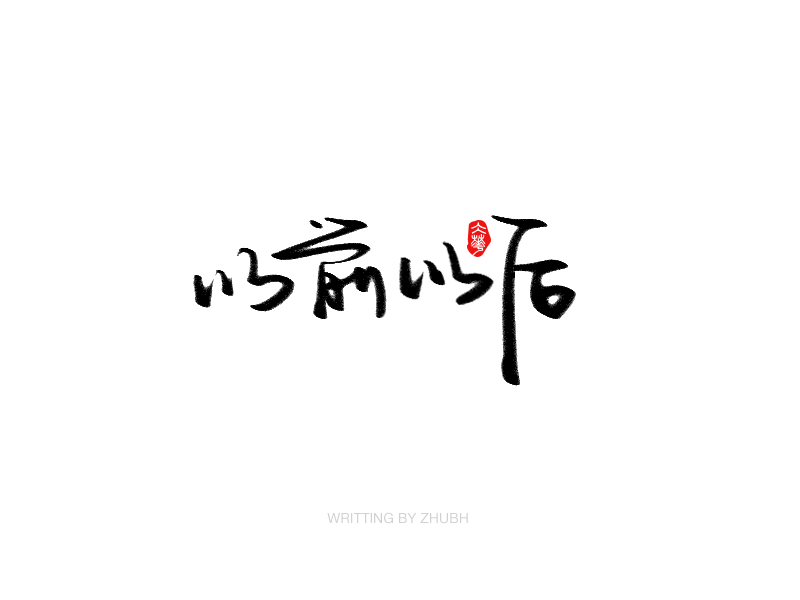 以前以后
大華
WRITTING BY ZHUBH